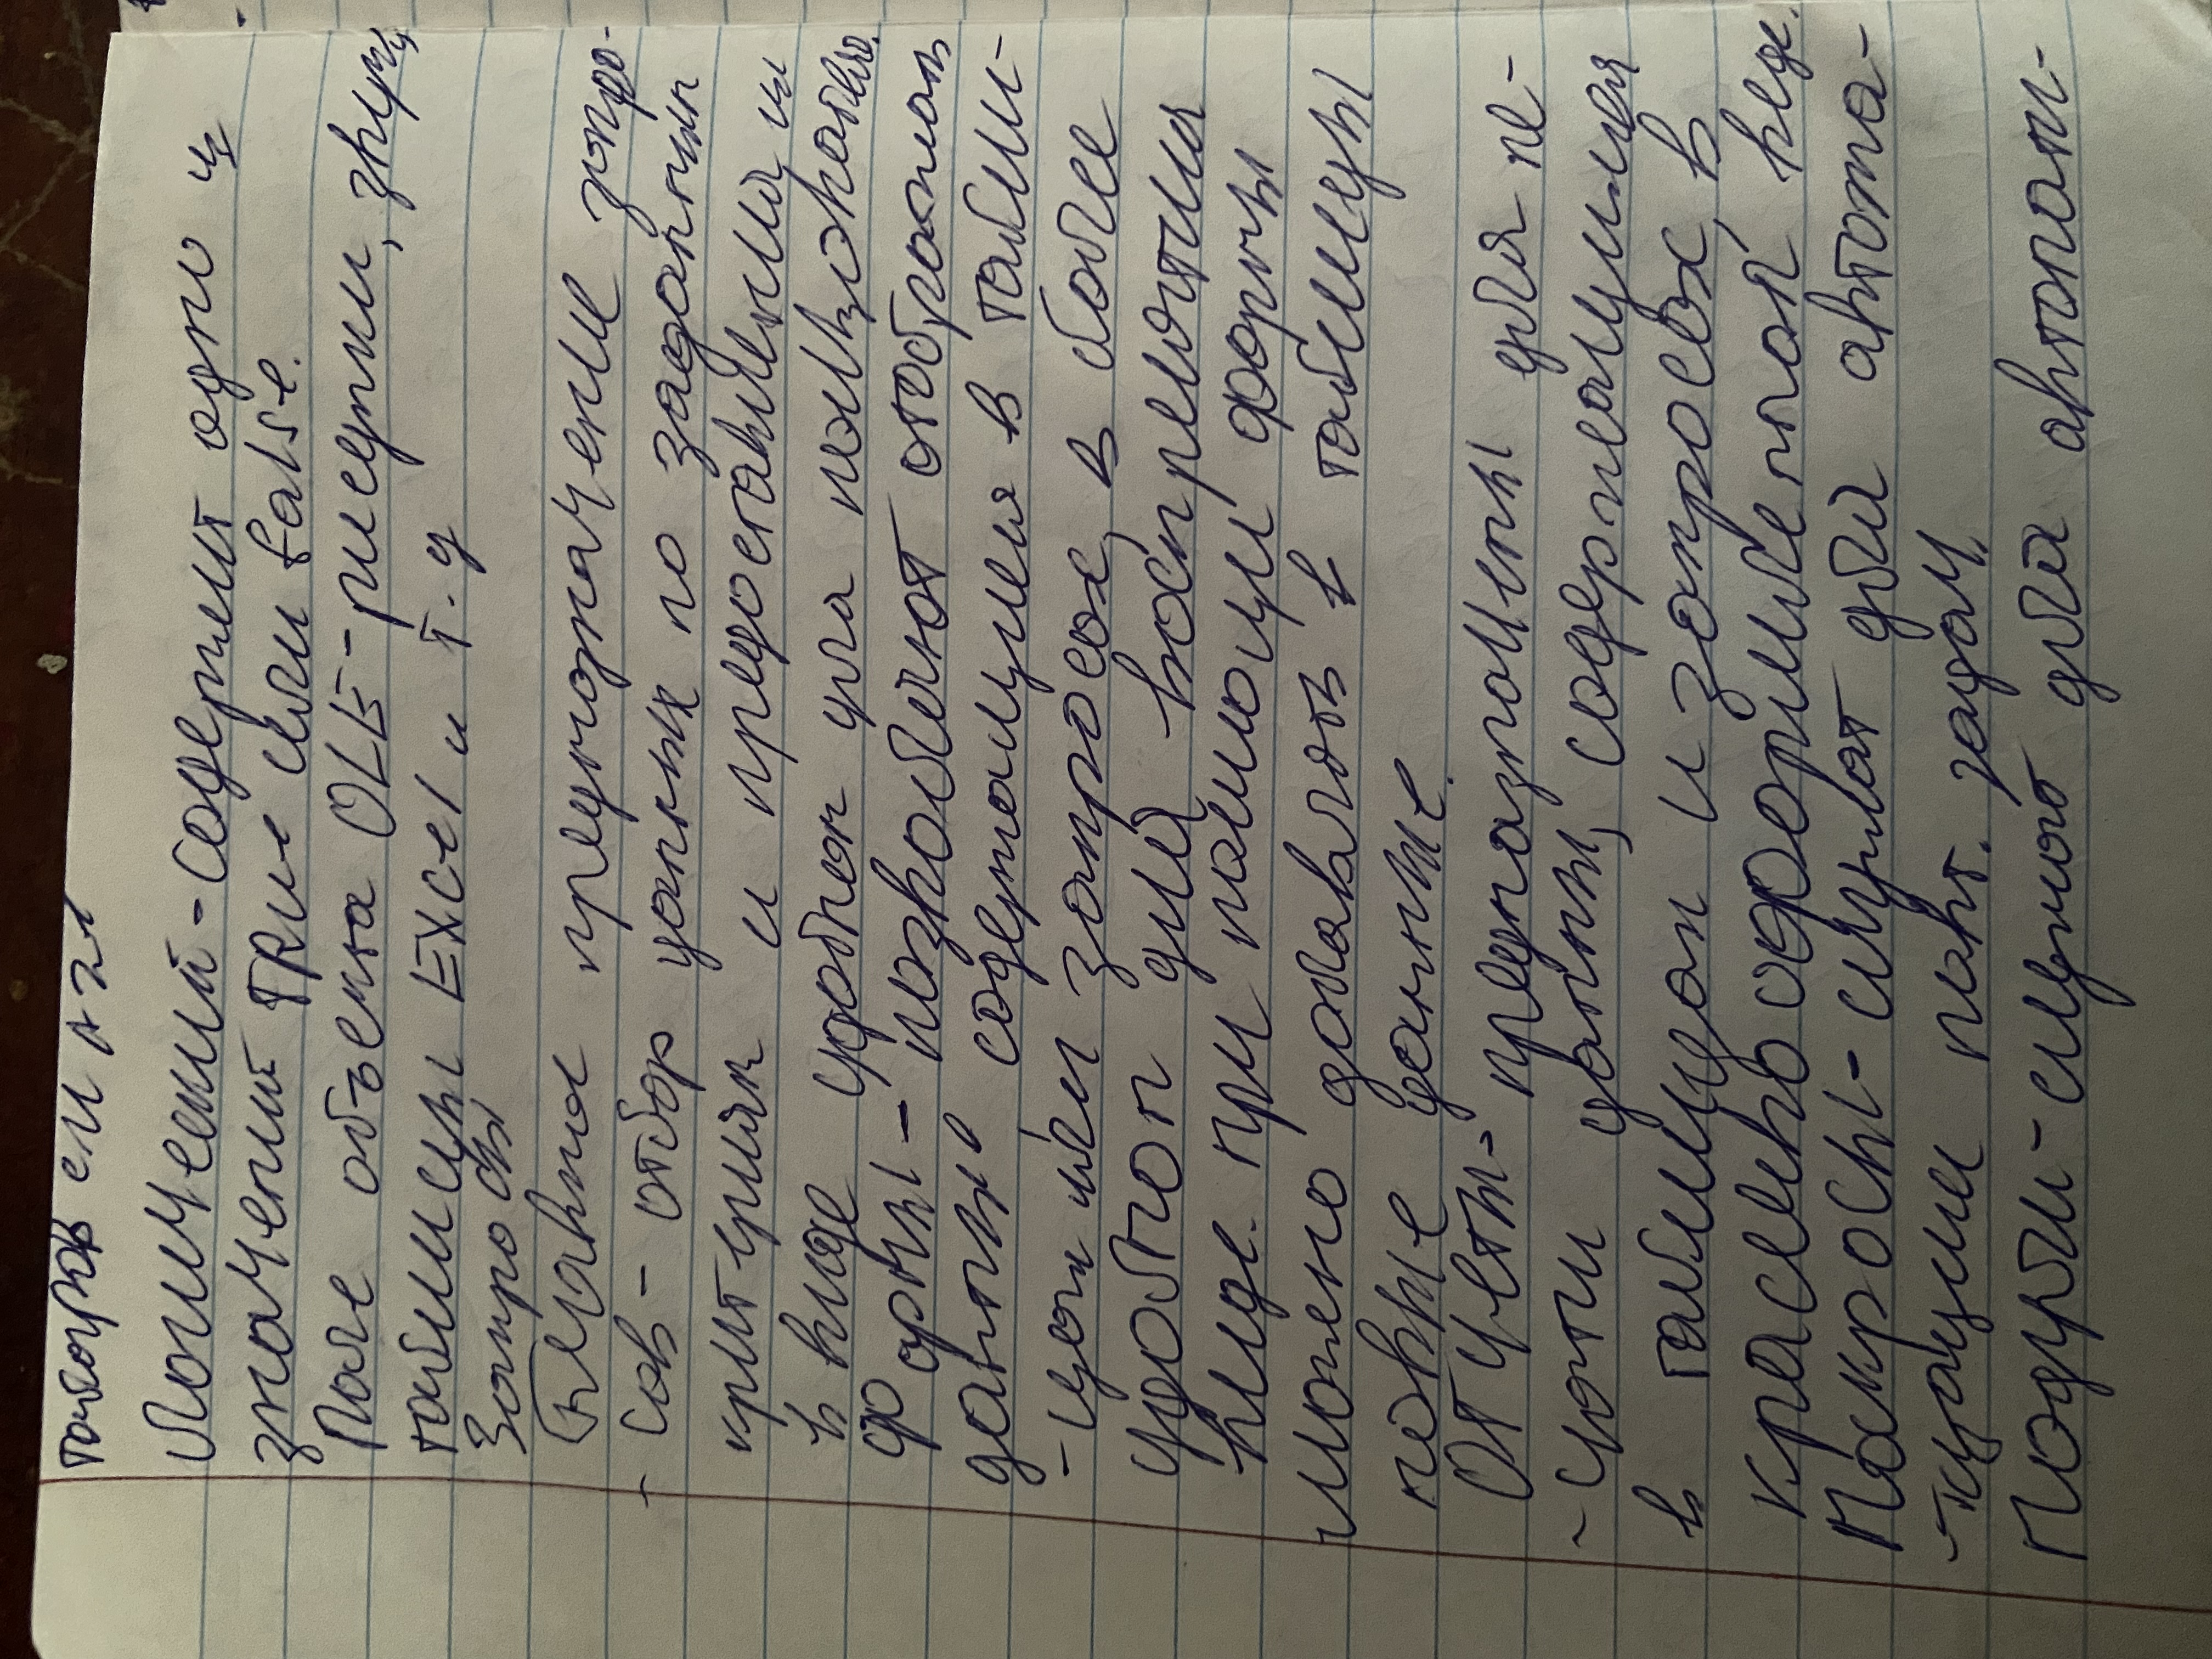 Логический - содержит одно из
значений TRue или false.
Поле объекта OLE - рисунки, звук,
таблицы EXcel и т.д
Запросы
Главное предназначение запро-
-сов - отбор данных по заданным
критериям и предоставление их
в виде удобном для пользователю.
формы - позволяют отображать
данные содержащиеся в табли-
-цах или запросах, в более
удобном для восприятия
виде. при помощи формы
можно добавлять в таблицы
новые данные.
Отчеты - предназначены для пе-
-чати данных, содержащихся
в таблицах и запросах, в
красиво оформленной виде.
Макросы - служат для автома-
-тизации повт. задач.
Модули - служит для автомати-